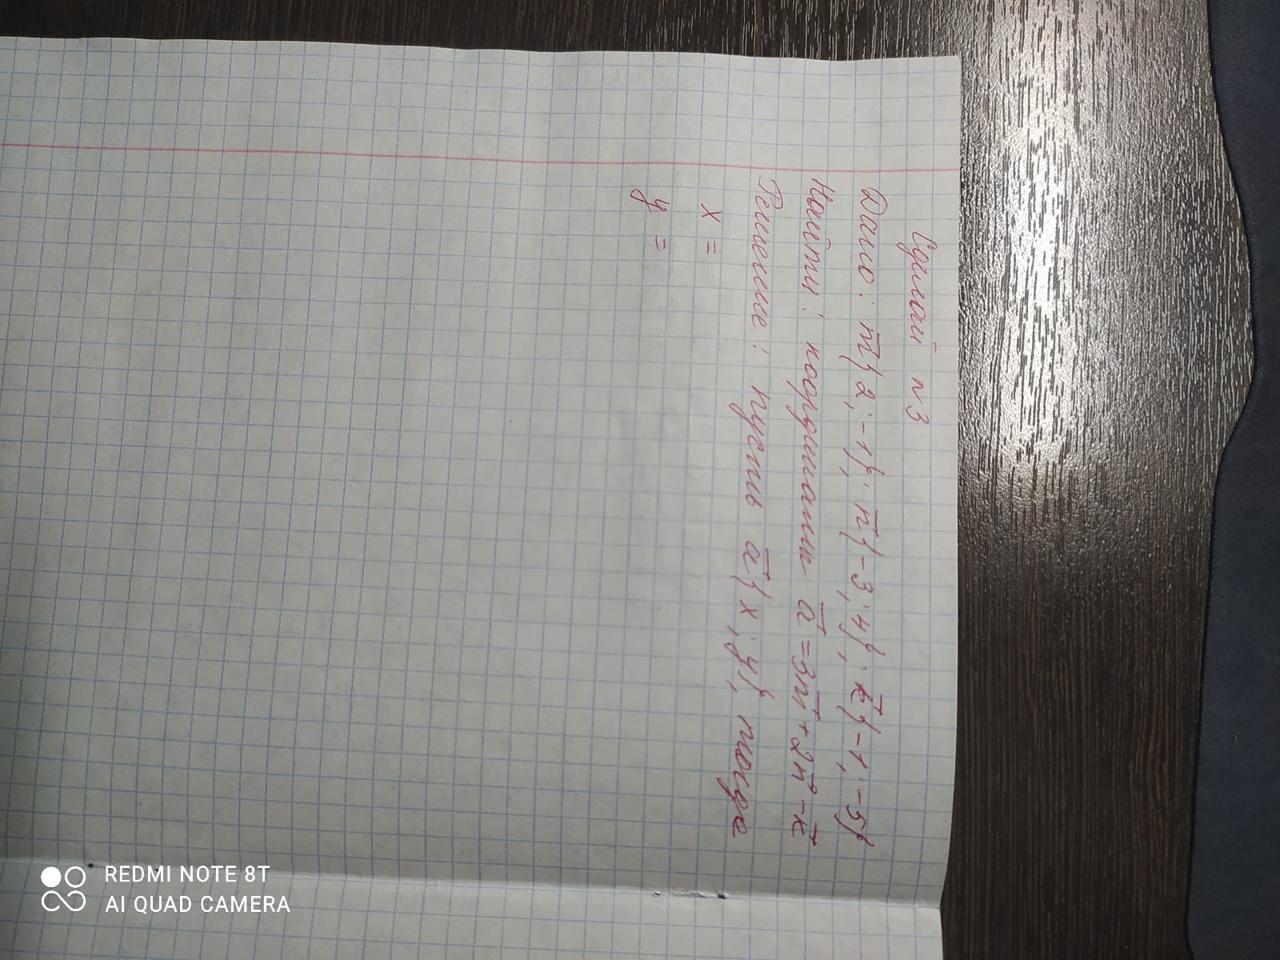 Сделай №3
Дано: m⃗{2; -1}; n⃗{-3; 4}; k⃗{-1; -5}
Найти: координаты a⃗ = 3m⃗ + 2n⃗ - k⃗
Решение: пусть a⃗{x; y}, тогда
x =
y =
REDMI NOTE 8T
AI QUAD CAMERA